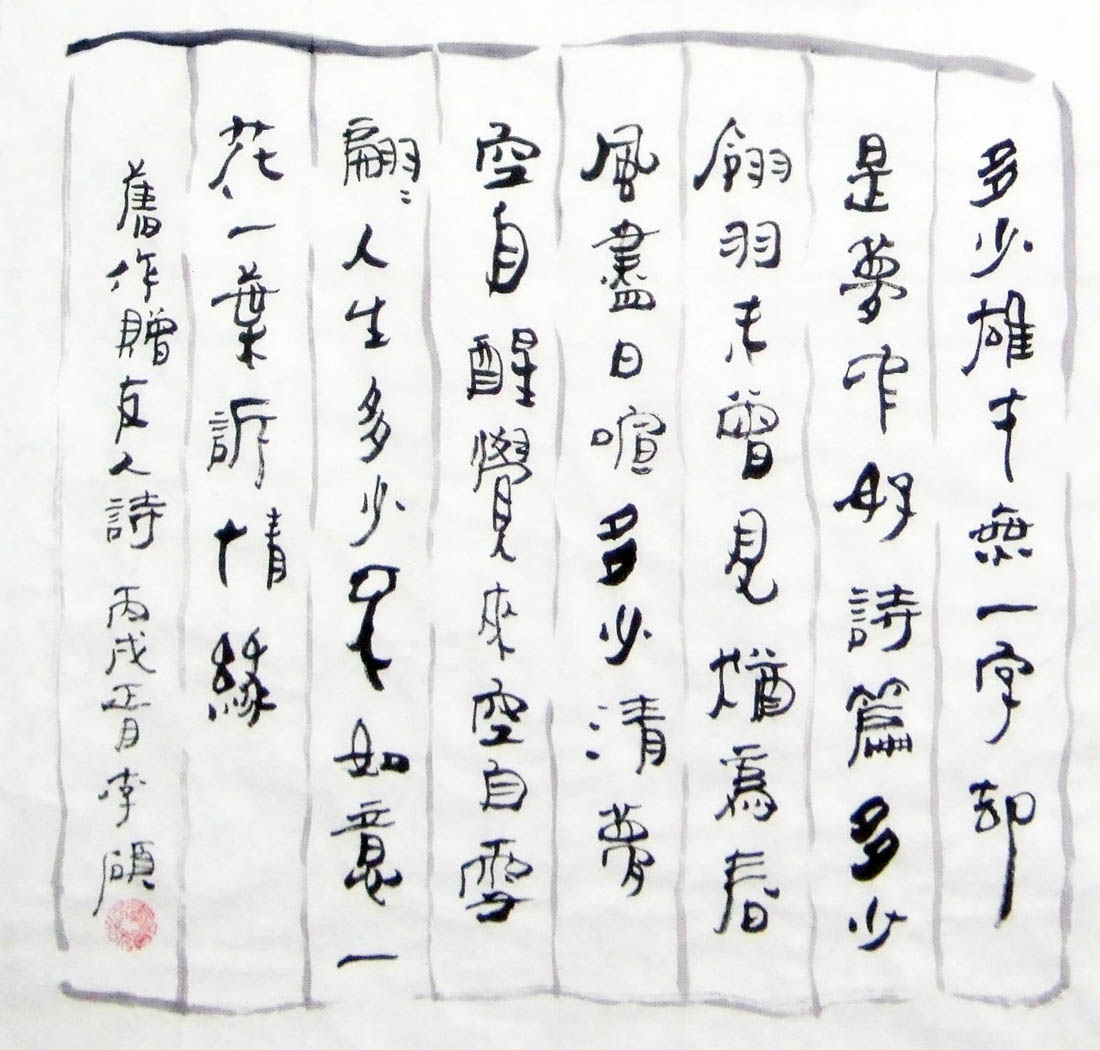 多少雄才無一字却
是夢中好詩篇多少
翎羽未曾見猶為春
風盡日喧多少清夢
空自醒覺來空自雪
翩〻人生多少不如意一
花一葉訴情緣
舊作贈友人詩 丙戌正月李碩